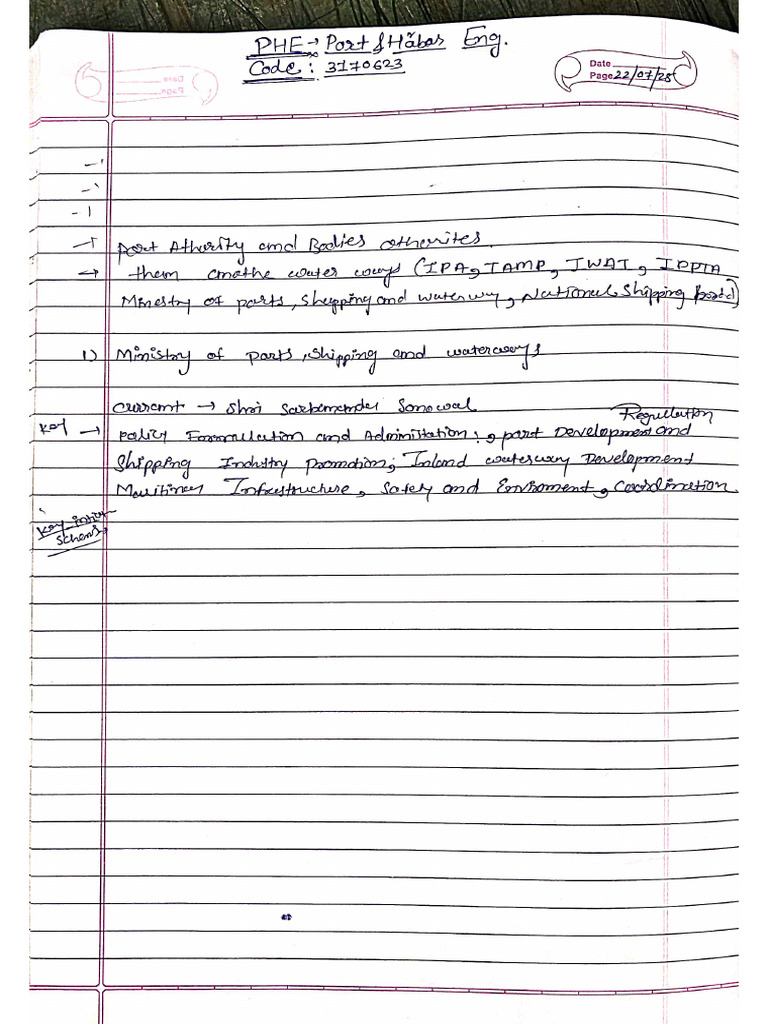 PHE → Port & Hãbar Eng.
Code: 3170623
Date
Page 22/07/25
→ Port Athority and Bodies otherites.
→ them cmathe water ways (IPA, TAMP, IWAI, IPPTA
Minestry of ports, Shupping and waterway, National Shipping Board)
1) Ministry of ports, shipping and waterways
current → Shri Sarbamander Sonowal
Regullation
Key → policy Formullation and Admimistation:, port Development and
Shipping Industry promotion; Inland waterway Development
Maritimay Infrustructure, Safety and Enviroment, Coordination
Key
schems